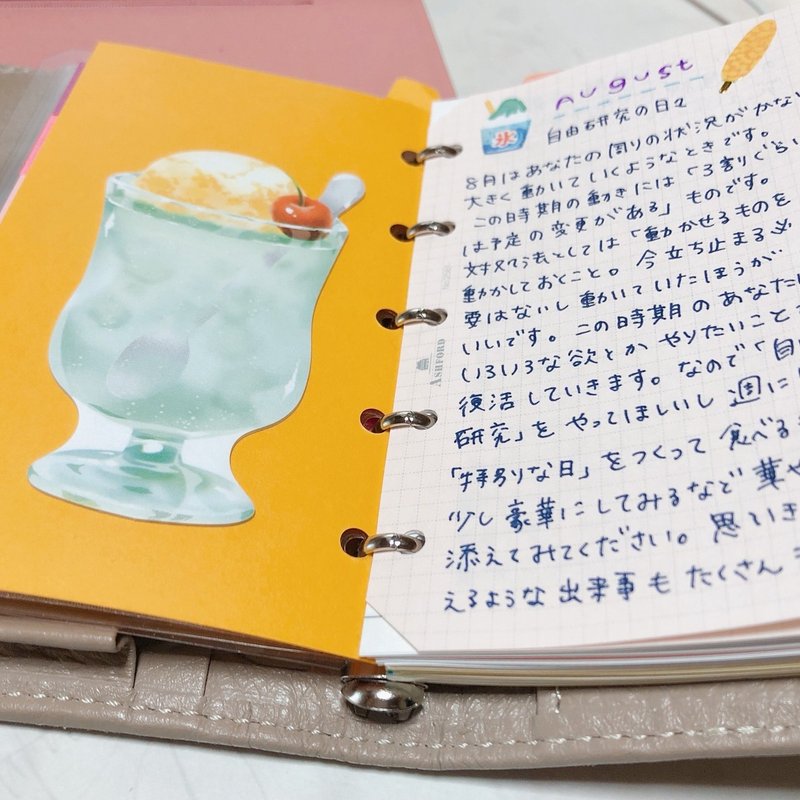 August
氷
自由研究の日々
8月はあなたの周りの状況がかない
大きく動いていくようなときです。
この時期の動きには「3割ぐらい
は予定の変更がある」ものです。
対処法としては「動かせるものを
動かしておくこと。今立ち止まる必
要はないし動いていたほうが
いいです。この時期のあなたは
いろいろな欲とか やりたいことを
復活していきます。なので「自由
研究」を やってほしいし 週に
「特別な日」をつくって 食べる
少し豪華にしてみるなど 華や
添えてみてください。思い
えるような 出来事も たくさん
ASHFORD